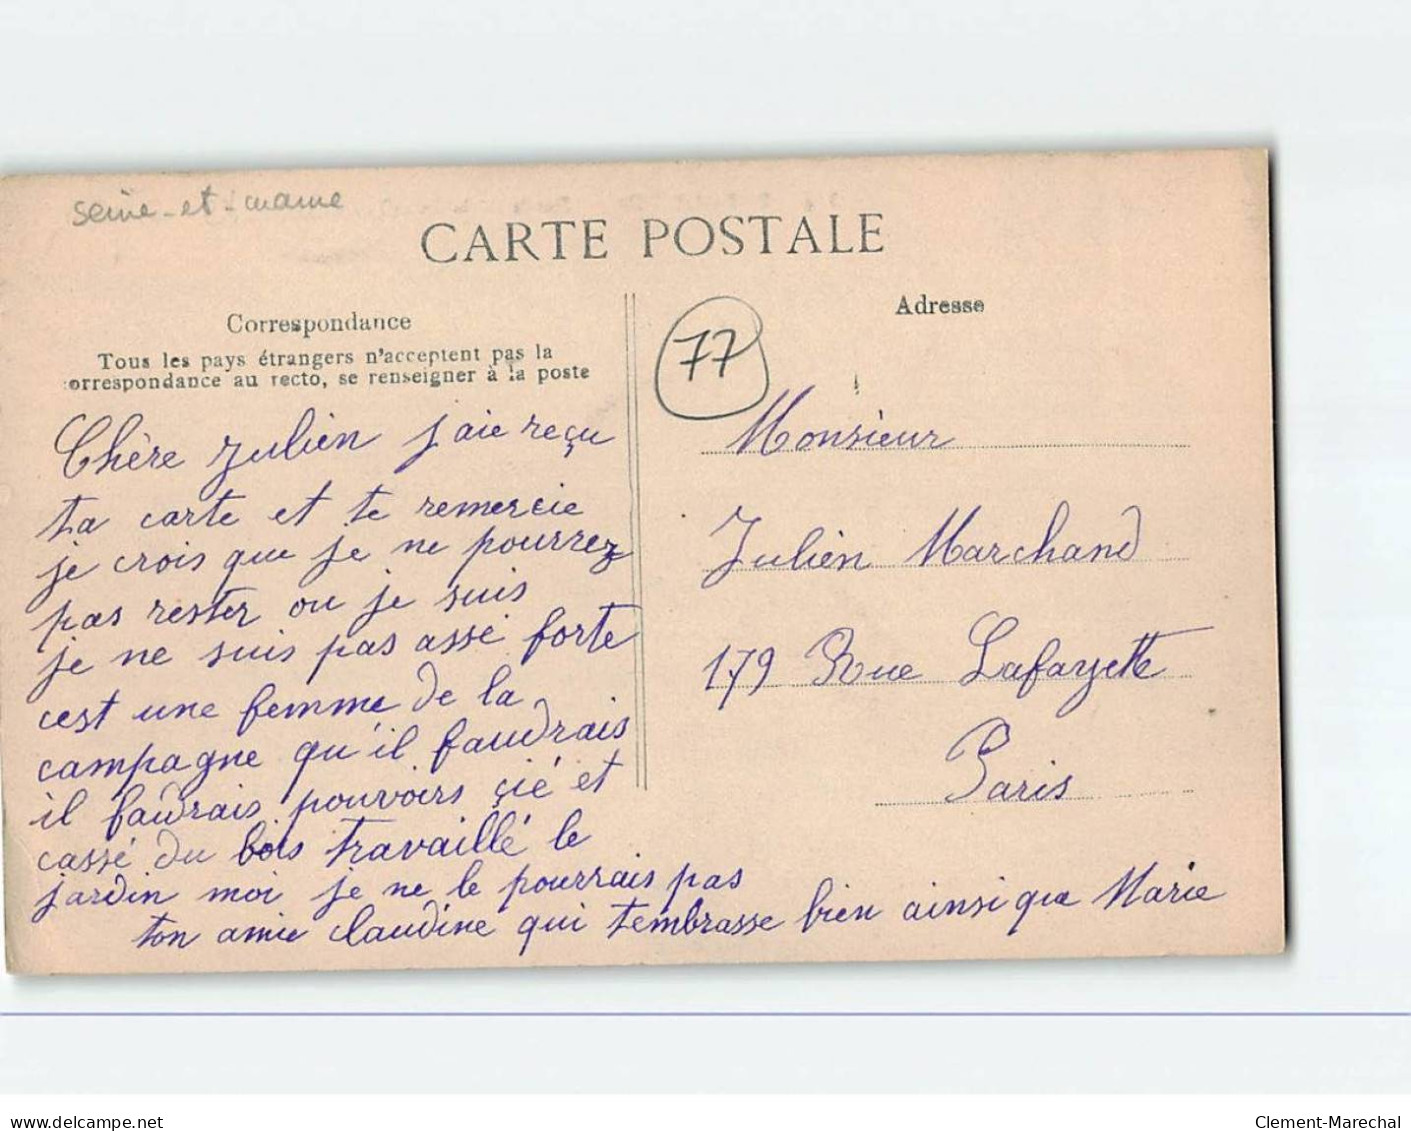 seine-et-marne
CARTE POSTALE
Correspondance
Tous les pays étrangers n'acceptent pas la
orrespondance au recto, se renseigner à la poste
Chère Julien J'aie reçu
ta carte et te remercie
je crois que je ne pourrez
pas rester ou je suis
je ne suis pas assé forte
cest une femme de la
campagne qu'il faudrais
il faudrais pouvoirs çié et
cassé du bois travaillé le
jardin moi je ne le pourrais pas
ton amie Claudine qui t'embrasse bien ainsi que Marie
77
Adresse
Monsieur
Julien Marchand
179 Rue Lafayette
Paris
www.delcampe.net
Clement-Marechal